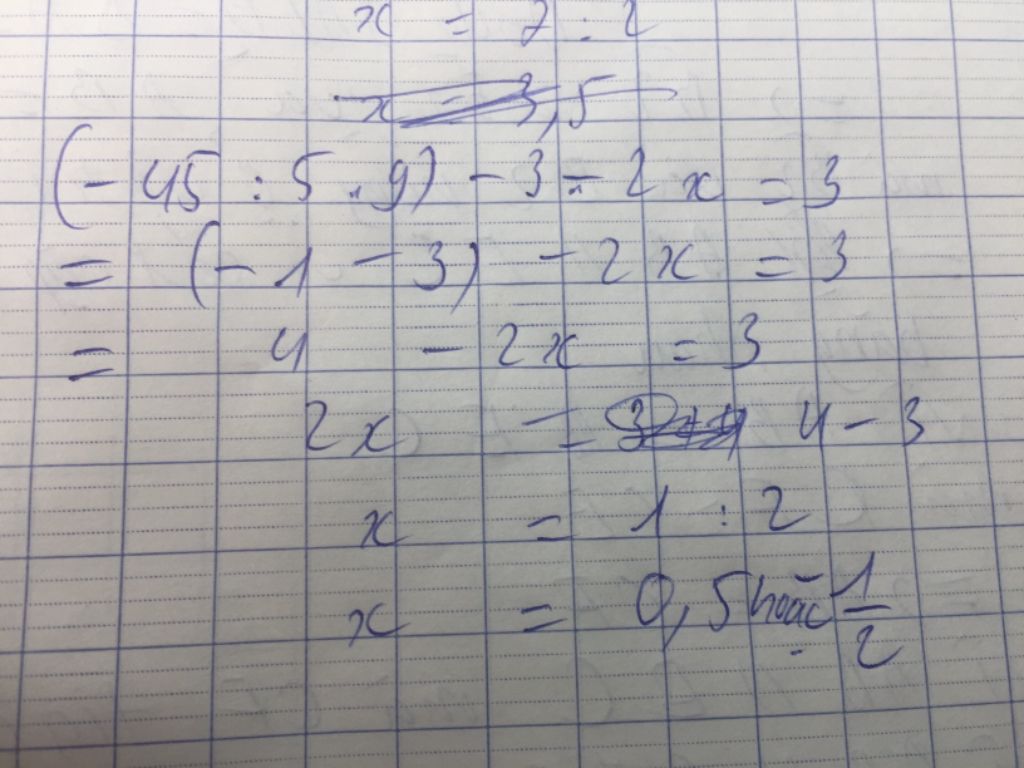 x = 7 : 2
x = 3,5
(- 45 : 5 . 9) - 3 - 2x = 3
= (- 1 - 3) - 2x = 3
= 4 - 2x = 3
2x = 4 - 3
x = 1 : 2
x = 0,5 hoặc 1/2